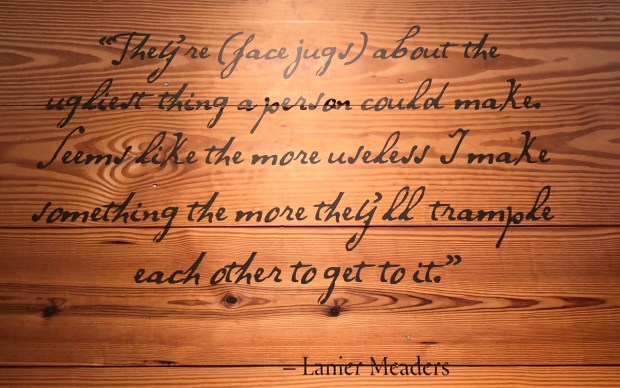 “They’re (face jugs) about the
ugliest thing a person could make.
Seems like the more useless I make
something the more they’ll trample
each other to get to it.”
– Lanier Meaders